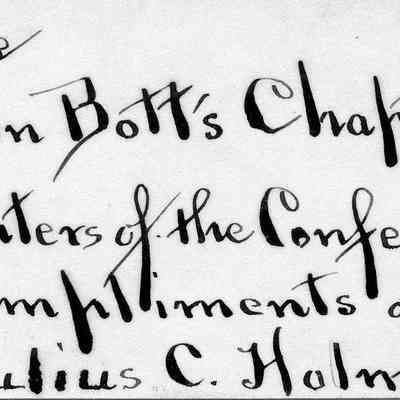 n Bott's Chap
ters of the Confe
mpliments o
ulius C. Holm